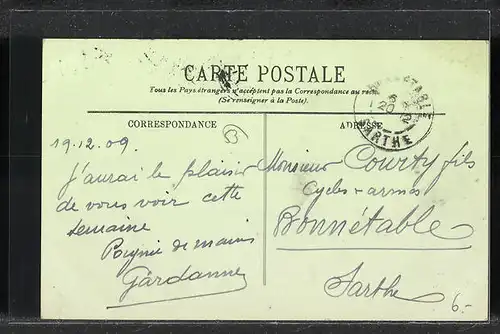 CARTE POSTALE
Tous les Pays étrangers n'acceptent pas la Correspondance au recto
(Se renseigner à la Poste).
CORRESPONDANCE
ADRESSE
BONNÉTABLE
20
12
SARTHE
19.12.09.
J'aurai le plaisir
de vous voir cette
semaine
Poignée de mains
Gardanne
Monsieur Courty fils
Cycles + armes
Bonnétable
Sarthe
6.-